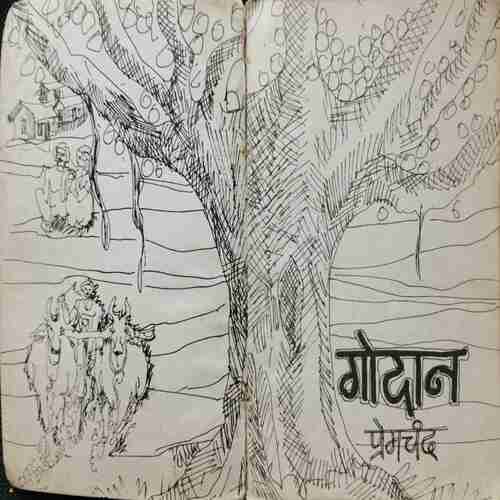 गोदान
प्रेमचंद